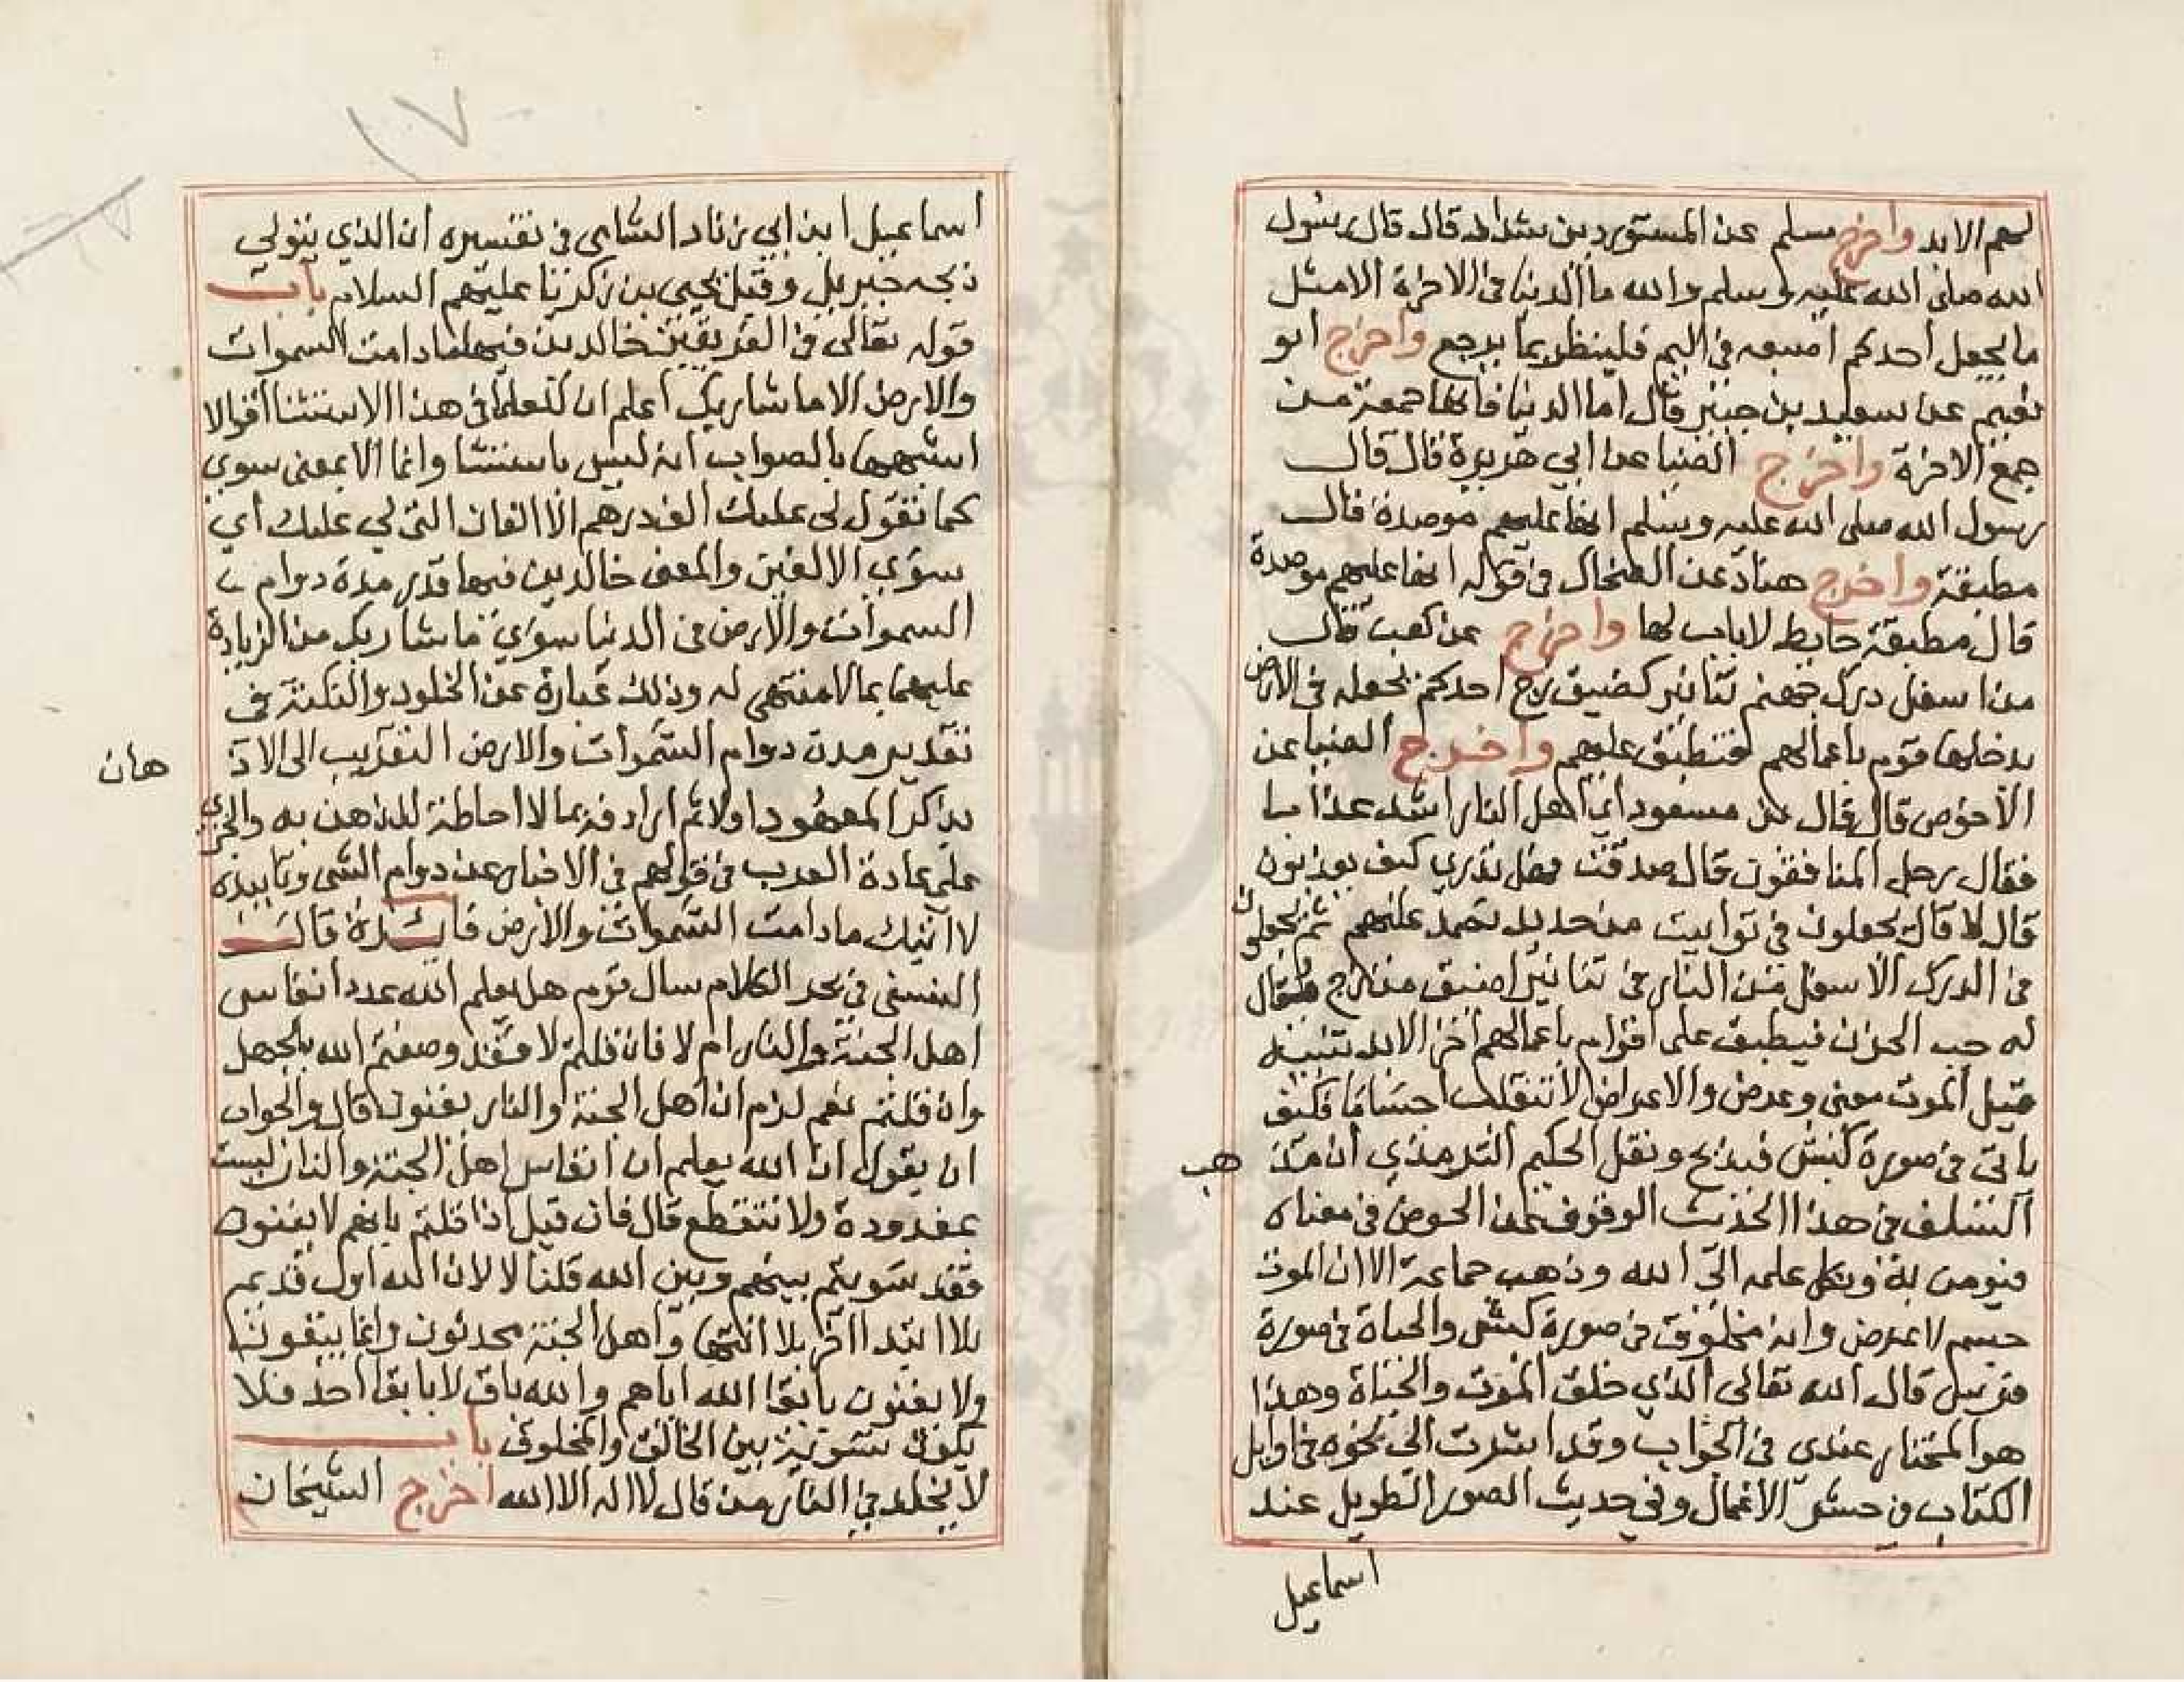 لهم الابد واخرج مسلم عن المستورد بن شداد قال قال رسول
الله صلى الله عليه وسلم والله ما الدنيا في الاخرة الا مثل
ما يجعل احدكم اصبعه في اليم فلينظر بما يرجع واخرج ابو
نعيم عن سعيد بن جبير قال اما الدنيا فانها جمعة من
جمع الاخرة واخرج الضيا عن ابي هريرة قال قال
رسول الله صلى الله عليه وسلم انها عليهم موصدة قال
مطبقة واخرج هناد عن الضحاك في قوله انها عليهم موصدة
قال مطبقة حايط لا باب لها واخرج عن كعب قال
من اسفل درك جهنم تنانير كضيق زج احدكم يجعله في الارض
يدخلها قوم باعمالهم فتطبق عليهم واخرج الضيا عن
الاحوص قال قال بن مسعود اي اهل النار اشد عذابا
فقال رجل المنافقون قال صدقت فهل تدري كيف يعذبون
قال لا قال يجعلون في توابيت من حديد تصمد عليهم ثم يجعلون
في الدرك الاسفل من النار في تنانير اضيق من الزج يقال
له جب الحزن فيطبق على اقوام باعمالهم اخر الابد تنبيه
قيل الموت معنى وعرض والاعراض لا تنقلب اجساما فكيف
ياتي في صورة كبش فيذبح ونقل الحكيم الترمذي ان مذ
هب
السلف في هذا الحديث الوقوف عن الخوض في معناه
فنومن به ونكل علمه الى الله وذهب جماعة الا ان الموت
جسم لا عرض وانه مخلوق في صورة كبش والحياة في صورة
فرس قال الله تعالى الذي خلق الموت والحياة وهذا
هو المختار عندي في الجواب وقد اشرت الى نحوه في اوايل
الكتاب في حشر الاعمال وفي حديث الصور الطويل عند
اسماعيل
١٧
اسماعيل ابن ابي زناد الشامي في تفسيره ان الذي يتولى
ذبحه جبريل وقيل يحيى بن زكريا عليهم السلام باب
قوله تعالى في الفريقين خالدين فيها ما دامت السموات
والارض الا ما شا ربك اعلم ان للعلما في هذا الاستثنا اقوالا
اشبهها بالصواب انه ليس باستثنا وانما الا بمعنى سوى
كما تقول لي عليك الف درهم الا الفان التي لي عليك اي
سوى الالفين والمعنى خالدين فيها قدر مدة دوام
السموات والارض في الدنيا سوى ما شا ربك من الزيادة
عليهما بما لا منتهى له وذلك عبارة عن الخلود والنكتة في
تقدير مدة دوام السموات والارض التقريب الى الاذ
هان
بذكر المعهود اولا ثم اردفه بما لا احاطة للذهن به والجري
على عادة العرب في قولهم في الاخبار عن دوام الشي وتابيده
لا اتيك ما دامت السموات والارض فايدة قال
النسفي في بحر الكلام سال قوم هل يعلم الله عدد انفاس
اهل الجنة والنار ام لا فان قلتم لا فقد وصفتم الله بالجهل
وان قلتم نعم لزم ان اهل الجنة والنار يفنون قال والجواب
ان يقول ان الله يعلم ان انفاس اهل الجنة والنار ليست
بمعدودة ولا تنقطع قال فان قيل اذا قلتم بانهم لا يفنون
فقد سويتم بينهم وبين الله قلنا لا لان الله اول قديم
بلا ابتدا اخر بلا انتها واهل الجنة محدثون وانما يبقون
ولا يفنون بابقا الله اياهم والله باق لا بابقا احد فلا
يكون تسوية بين الخالق والمخلوق باب
لا يخلد في النار من قال لا اله الا الله اخرج الشيخان